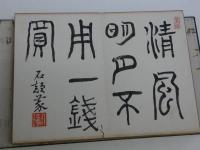 清風
明月不
用一錢
買
石頭篆